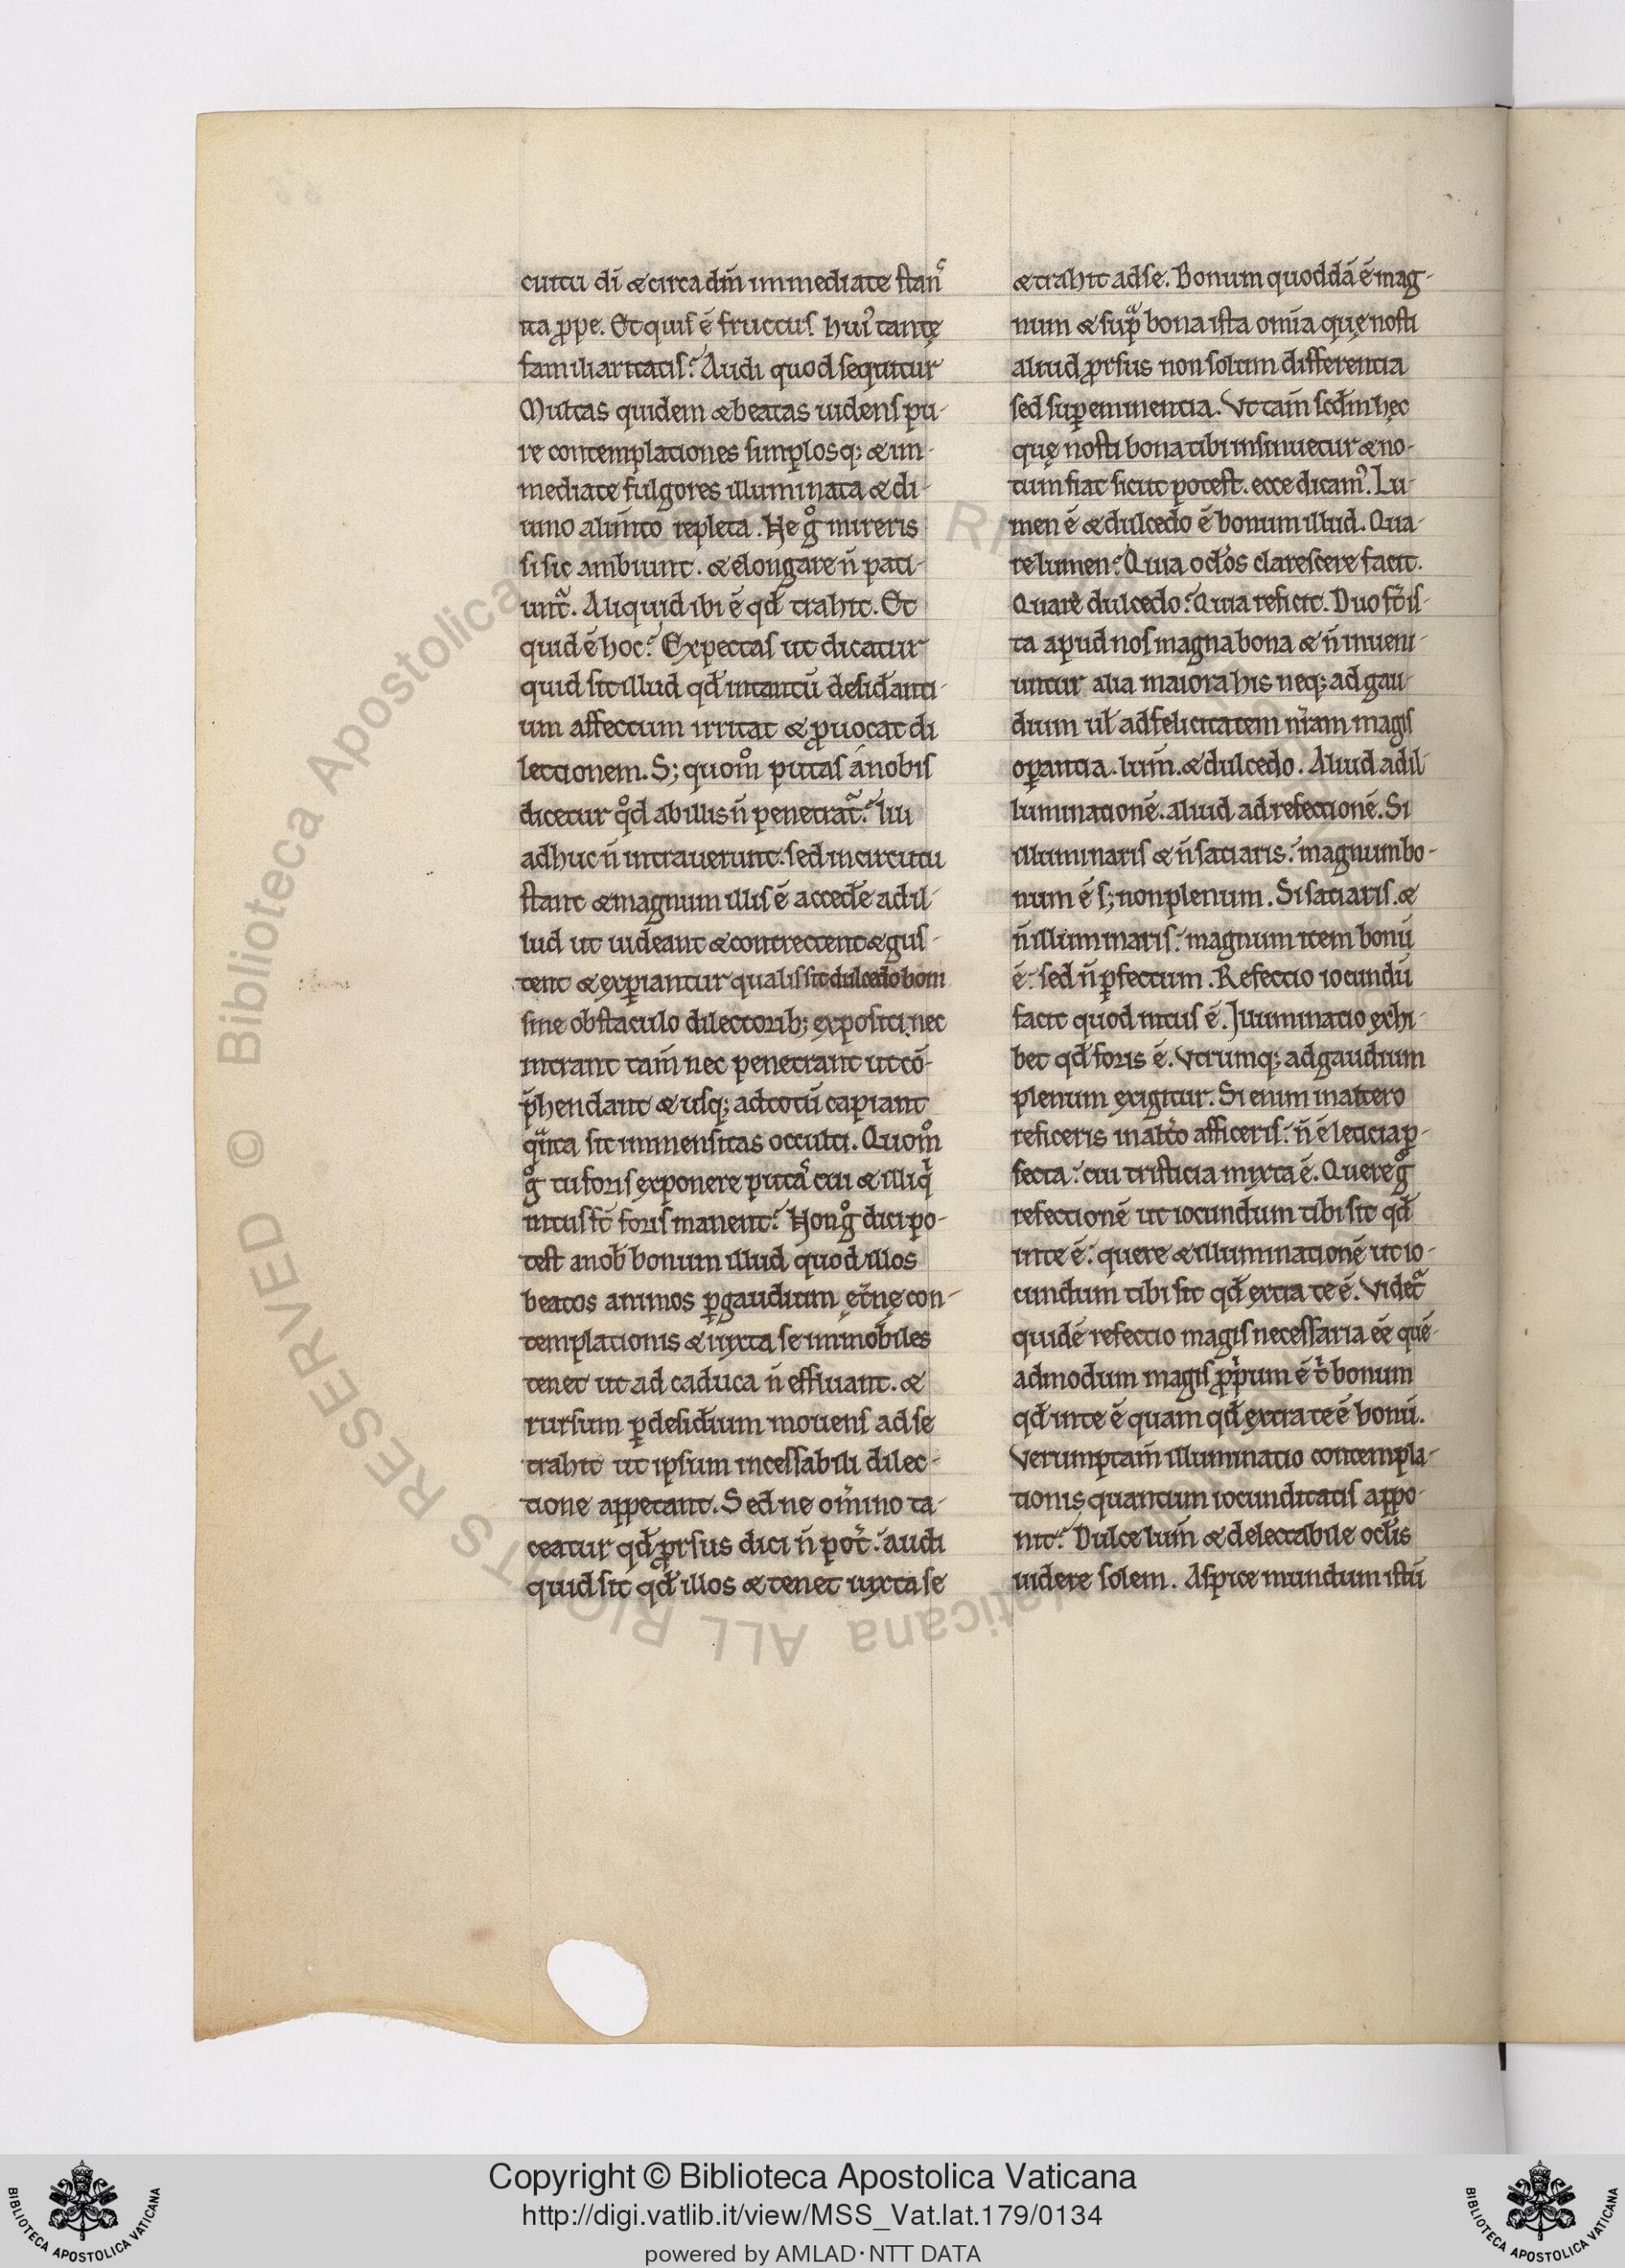 cuitu dī ⁊ circa dm̄ immediate stans
ita ꝓpe. Et quis ē fructus hui᷒ tantę
familiaritatis? Audi quod sequitur
Multas quidem ⁊ beatas uidens pu-
re contemplationes simplosq; ⁊ im-
mediate fulgores illuminata ⁊ di-
uino alim̄to repleta. Ne gͦ mireris
si sic ambiunt. ⁊ elongare n̄ pati-
unt᷑. Aliquid ibi ē qđ trahit. Et
quid ē hoc? Expectas ut dicatur
quid sit illud qđ in tantū desiđanti-
um affectum irritat ⁊ ꝓuocat di
lectionem. S; quom̊ putas a nobis
dicetur qͦd ab illis n̄ penetrat᷑? Illi
adhuc n̄ intrauerunt. sed in circuitu
stant ⁊ magnum illis ē acceđe ad il-
lud ut uideant ⁊ contrectent ⁊ gus-
tent ⁊ exꝑiantur qualis sit dulcedo boni
sine obstaculo dilectorib; expositi. nec
intrant tam̄ nec penetrant ut cō-
p̄hendant ⁊ usq; ad totū capiant
qͣnta sit immensitas occulti. Quom̊
gͦ tu foris exponere putas cui ⁊ illi qͥ
intus st̄ foris manent? Non gͦ dici po-
test a nob̄ bonum illud quod illos
beatos animos ꝑ gaudium ęt̄nę con-
templationis ⁊ iuxta se immobiles
tenet ut ad caduca n̄ effluant. ⁊
rursum ꝑ desiđium mouens ad se
trahit ut ipsum incessabili dilec-
tione appetant. Sed ne om̄ino ta-
ceatur qđ ꝓrsus dici n̄ pot̄. audi
quid sit qđ illos ⁊ tenet iuxta se
⁊ trahit ad se. Bonum quoddā ē mag-
num ⁊ supͣ bona ista om̄ia quę nosti
aliud ꝓrsus non solum differentia
sed suꝑeminentia. Vt tam̄ scđm hęc
quę nosti bona tibi insinuetur ⁊ no-
tum fiat sicut potest. ecce dicam᷒. Lu-
men ē ⁊ dulcedo ē bonum illud. Qua-
re lumen? Quia oc̄los clarescere facit.
Quare dulcedo? Quia reficit. Duo st̄ is-
ta apud nos magna bona ⁊ n̄ inueni-
untur alia maiora his neq; ad gau-
dium ul̄ ad felicitatem nr̄am magis
oꝑantia. lum̄. ⁊ dulcedo. Aliud ad il-
luminationē. aliud ad refectionē. Si
illuminaris ⁊ n̄ satiaris. magnum bo-
num ē s; non plenum. Si satiaris. ⁊
n̄ illuminaris. magnum item bonū
ē. sed n̄ ꝑfectum. Refectio iocundū
facit quod intus ē. Illuminatio exhi-
bet qđ foris ē. Vtrumq; ad gaudium
plenum exigitur. Si enim in altero
reficeris in alt̄o afficeris. n̄ ē leticia ꝑ-
fecta. cui tristicia mixta ē. Quere gͦ
refectionē ut iocundum tibi sit qđ
in te ē. quere ⁊ illuminationē ut io-
cundum tibi sit qđ extra te ē. Videt᷑
quidē refectio magis necessaria eē quē-
admodum magis ꝓpͥum ē tͥ bonum
qđ in te ē quam qđ extra te ē bonū.
Verumptam̄ illuminatio contempla-
tionis quantum iocunditatis appo-
nit? Dulce lum̄ ⁊ delectabile ocl̄is
uidere solem. Aspice mundum istū
Copyright © Biblioteca Apostolica Vaticana
http://digi.vatlib.it/view/MSS_Vat.lat.179/0134
powered by AMLAD·NTT DATA